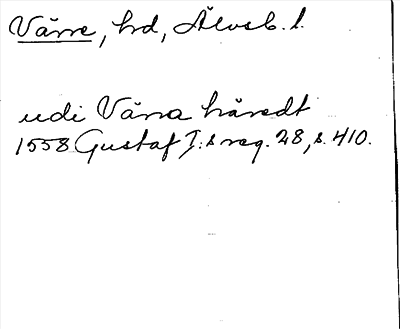 Väne, hd, Älvsb. l.
udi Väna häredt
1558 Gustaf I:s reg. 28, s. 410.